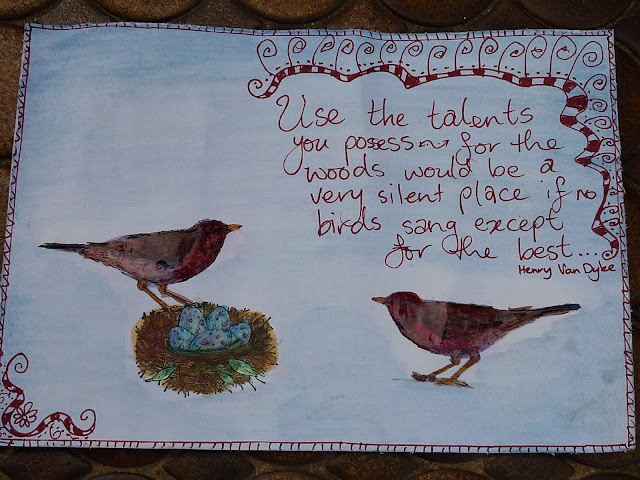 Use the talents
you possess ~ for the
woods would be a
very silent place if no
birds sang except
for the best...
Henry Van Dyke